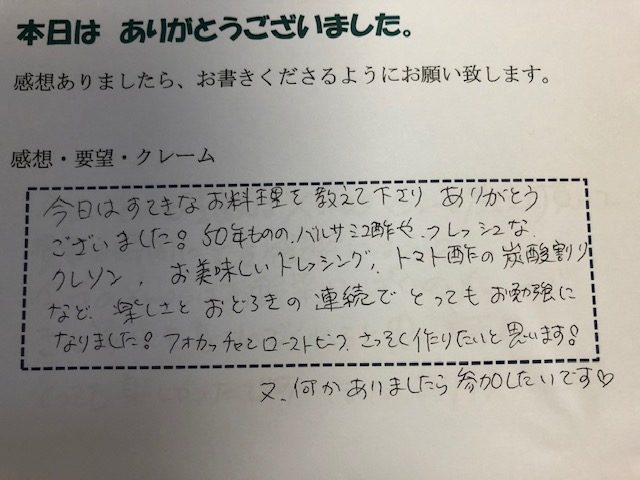 本日は ありがとうございました。
感想ありましたら、お書きくださるようにお願い致します。
感想・要望・クレーム
今日はすてきなお料理を教えて下さり ありがとう
ございました! 50年ものの、バルサミコ酢や、フレッシュな
クレソン、お美味しいドレッシング、トマト酢の炭酸割り
など、楽しさとおどろきの連続で とってもお勉強に
なりました! フォカッチャとローストビーフ、さっそく作りたいと思います!
又、何かありましたら参加したいです♡